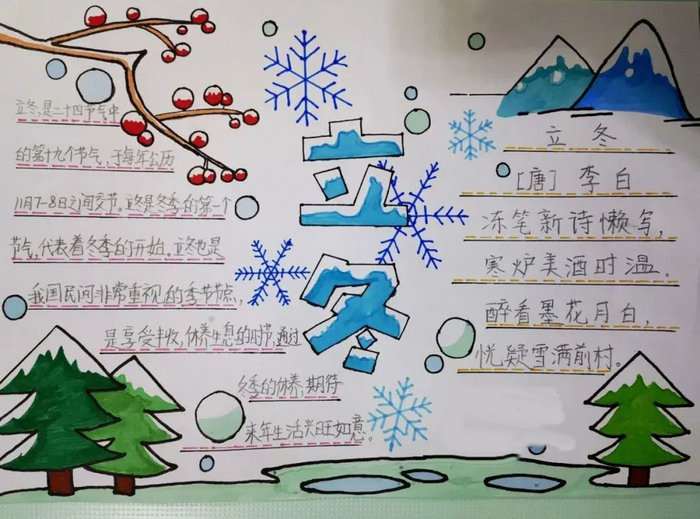 立冬,是二十四节气中
的第十九个节气、于每年公历
11月7-8日之间交节。立冬是冬季的第一个
节气,代表着冬季的开始。立冬也是
我国民间非常重视的季节节点,
是享受丰收,休养生息的时节,通过
冬季的休养,期待
来年生活兴旺如意。
立冬
立冬
[唐] 李白
冻笔新诗懒写,
寒炉美酒时温.
醉看墨花月白,
恍疑雪满前村。